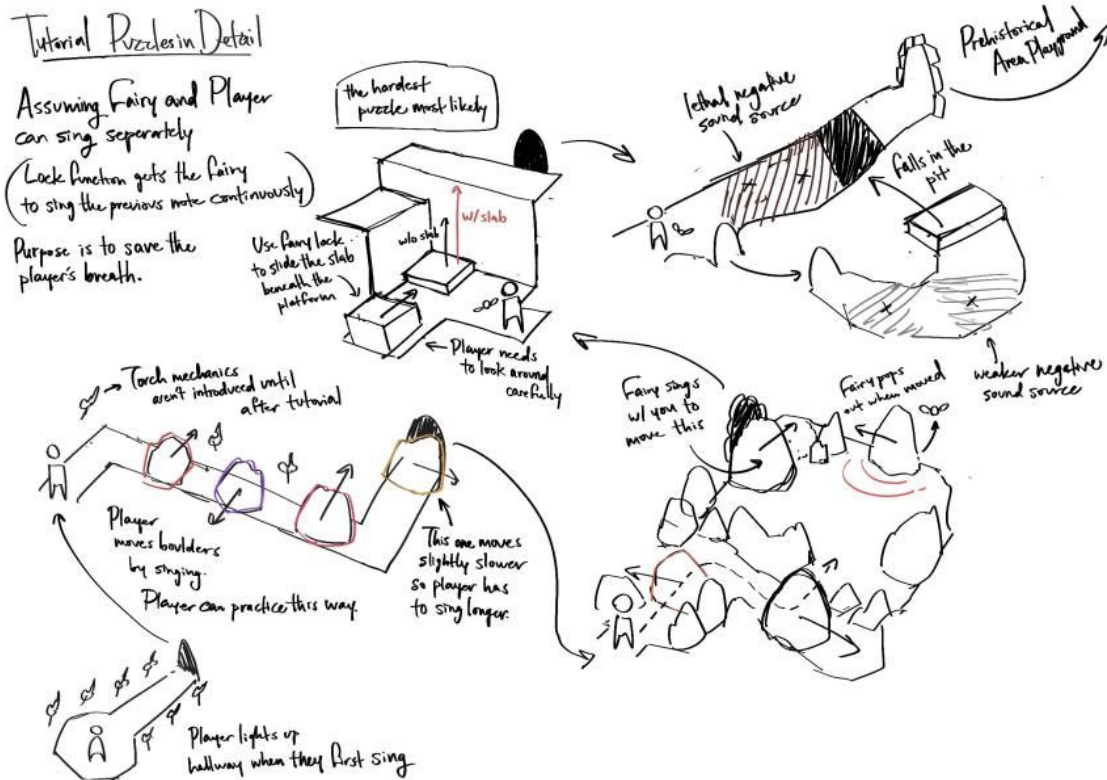 Tutorial Puzzles in Detail
Assuming Fairy and Player
can sing separately
(Lock function gets the fairy
to sing the previous note continuously)
Purpose is to save the
player's breath.
the hardest
puzzle most likely
w/ slab
w/o slab
Use fairy lock
to slide the slab
beneath the
platform
Player needs
to look around
carefully
lethal negative
sound source
Prehistorical
Area Playground
Falls in the
pit
weaker negative
sound source
Torch mechanics
aren't introduced until
after tutorial
Player
moves boulders
by singing.
Player can practice this way.
This one moves
slightly slower
so player has
to sing longer.
Fairy sings
w/ you to
move this
Fairy pops
out when moved
Player lights up
hallway when they first sing